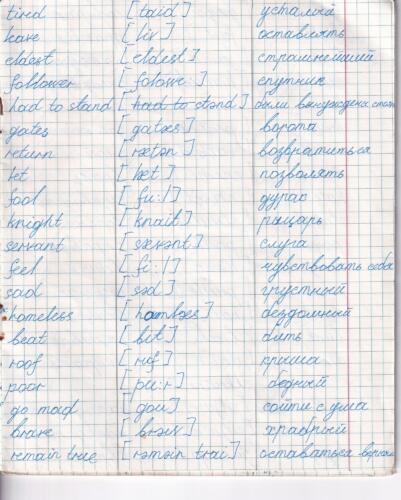 tired [taid] усталый
leave [liv] оставлять
eldest [eldest] страшнейший
follower [folowe:] спутник
had to stand [had to stənd] были вынуждены стоят
gates [gatæs] ворота
return [rætən] возвратиться
let [læt] позволять
fool [fu:l] дурак
knight [knait] рыцарь
servant [særvənt] слуга
feel [fi:l] чувствовать себя
sad [səd] грустный
homeless [hamlæs] бездомный
beat [bit] бить
roof [ruf] крыша
poor [pu:r] бедный
go mad [gou] сойти с ума
brave [brəiv] храбрый
remain true [rəməin trai] оставаться верным